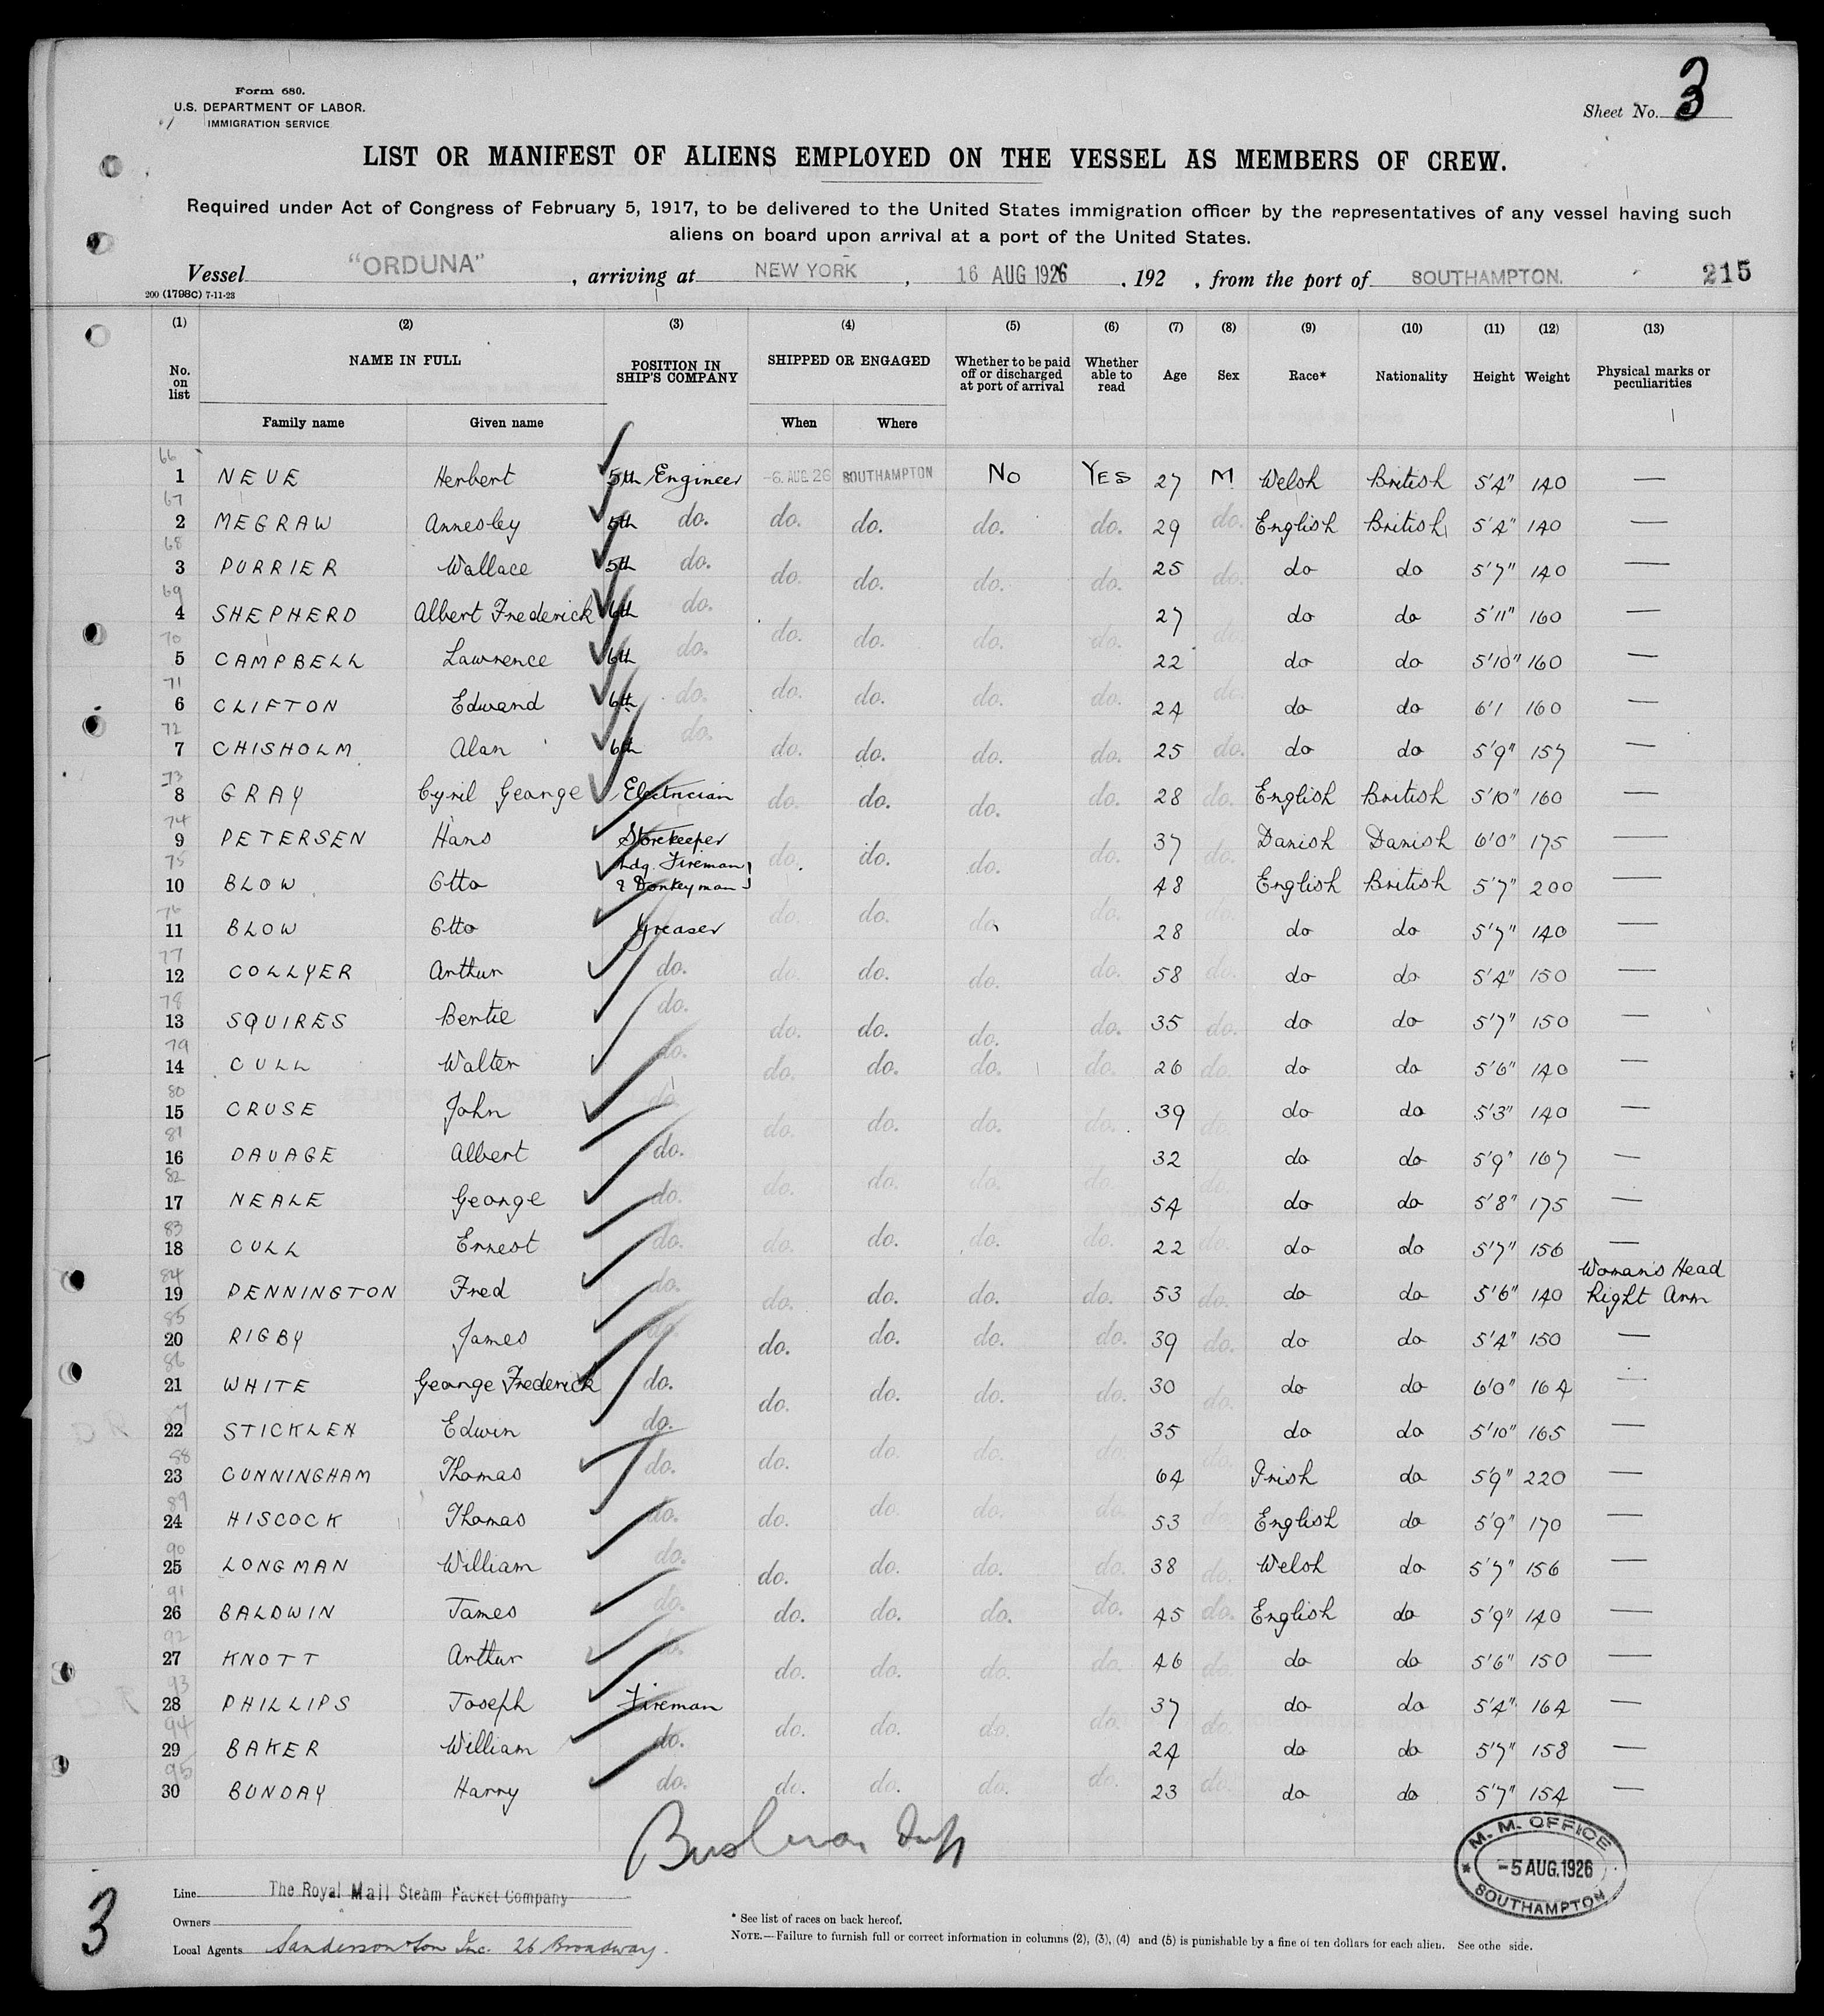 Form 680.
U.S. DEPARTMENT OF LABOR.
IMMIGRATION SERVICE
Sheet No. 3
LIST OR MANIFEST OF ALIENS EMPLOYED ON THE VESSEL AS MEMBERS OF CREW.
Required under Act of Congress of February 5, 1917, to be delivered to the United States immigration officer by the representatives of any vessel having such
aliens on board upon arrival at a port of the United States.
Vessel "ORDUNA", arriving at NEW YORK, 16 AUG 1926, 192 , from the port of SOUTHAMPTON. 215
200 (1798C) 7-11-23
(1) (2) (3) (4) (5) (6) (7) (8) (9) (10) (11) (12) (13)
No. on list NAME IN FULL POSITION IN SHIP'S COMPANY SHIPPED OR ENGAGED Whether to be paid off or discharged at port of arrival Whether able to read Age Sex Race* Nationality Height Weight Physical marks or peculiarities
Family name Given name When Where
66 1 NEVE Herbert 5th Engineer -6. AUG. 26 SOUTHAMPTON No YES 27 M Welsh British 5'4" 140 —
67 2 MEGRAW Annesley 5th do. do. do. do. do. 29 do. English British 5'4" 140 —
68 3 PURRIER Wallace 5th do. do. do. do. do. 25 do. do do 5'7" 140 —
69 4 SHEPHERD Albert Frederick 6th do. do. do. do. do. 27 do. do do 5'11" 160 —
70 5 CAMPBELL Lawrence 6th do. 22 do do 5'10" 160 —
71 6 CLIFTON Edward 6th do. do. do. do. do. 24 do. do do 6'1 160 —
72 7 CHISHOLM Alan 6th do. do. do. do. do. 25 do. do do 5'9" 157 —
73 8 GRAY Cyril George Electrician do. do. do. do. 28 do. English British 5'10" 160 —
74 9 PETERSEN Hans Storekeeper do. do. do. do. 37 do. Danish Danish 6'0" 175 —
75 10 BLOW Otto Ldg. Fireman & Donkeyman 48 English British 5'7" 200 —
76 11 BLOW Otto Greaser do. do. do. do. 28 do. do do 5'7" 140 —
77 12 COLLYER Arthur do. do. do. do. do. 58 do. do do 5'4" 150 —
78 13 SQUIRES Bertie do. do. do. do. do. 35 do. do do 5'7" 150 —
79 14 CULL Walter do. do. do. do. do. 26 do. do do 5'6" 140 —
80 15 CRUSE John do. do. do. do. do. 39 do. do do 5'3" 140 —
81 16 DAVAGE Albert do. 32 do do 5'9" 167 —
82 17 NEALE George do. do. do. do. do. 54 do. do do 5'8" 175 —
83 18 CULL Ernest do. do. do. do. do. 22 do. do do 5'7" 156 —
84 19 PENNINGTON Fred do. do. do. do. do. 53 do. do do 5'6" 140 Woman's Head Right Arm
85 20 RIGBY James do. do. do. do. do. 39 do. do do 5'4" 150 —
86 21 WHITE George Frederick do. do. do. do. do. 30 do. do do 6'0" 164 —
22 STICKLEN Edwin do. 35 do do 5'10" 165 —
88 23 CUNNINGHAM Thomas do. do. do. do. do. 64 do. Irish do 5'9" 220 —
89 24 HISCOCK Thomas do. do. do. do. do. 53 do. English do 5'9" 170 —
90 25 LONGMAN William do. do. do. do. do. 38 do. Welsh do 5'7" 156 —
91 26 BALDWIN James do. do. do. do. do. 45 do. English do 5'9" 140 —
92 27 KNOTT Arthur do. do. do. do. do. 46 do. do do 5'6" 150 —
93 28 PHILLIPS Joseph Fireman 37 do do 5'4" 164 —
94 29 BAKER William do. do. do. do. do. 24 do. do do 5'7" 158 —
95 30 BUNDAY Harry do. do. do. do. do. 23 do. do do 5'7" 154 —
M. M. OFFICE
-5 AUG. 1926
SOUTHAMPTON
3
Line The Royal Mail Steam Packet Company
Owners
Local Agents Sanderson & Son Inc. 26 Broadway.
* See list of races on back hereof.
NOTE.—Failure to furnish full or correct information in columns (2), (3), (4) and (5) is punishable by a fine of ten dollars for each alien. See othe side.